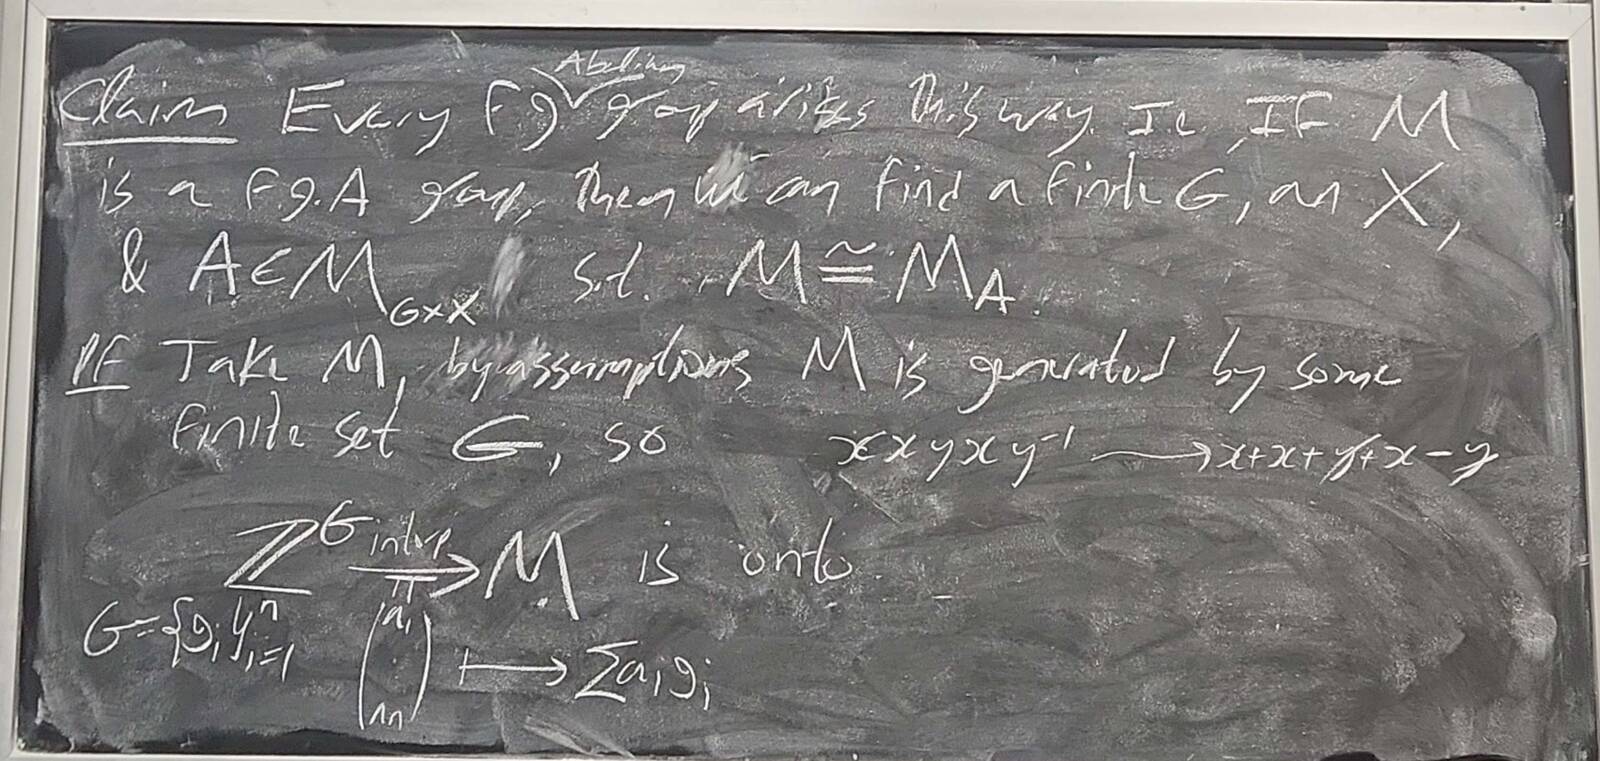 Claim Every fg Abelian group arises this way. I.e. IF M
is a f.g.A group, then we can find a finite G, an X,
& A∈M_{G×X} s.t. M ≅ M_A.
PF Take M, by assumptions M is generated by some
finite set G, so x x y x y⁻¹ ⟶ x+x+y+x−y
ℤ^G —interp/π→ M is onto.
G={g_i}ⁿ_{i=1} (a_1 ⋮ a_n) ⟼ ∑a_i g_i